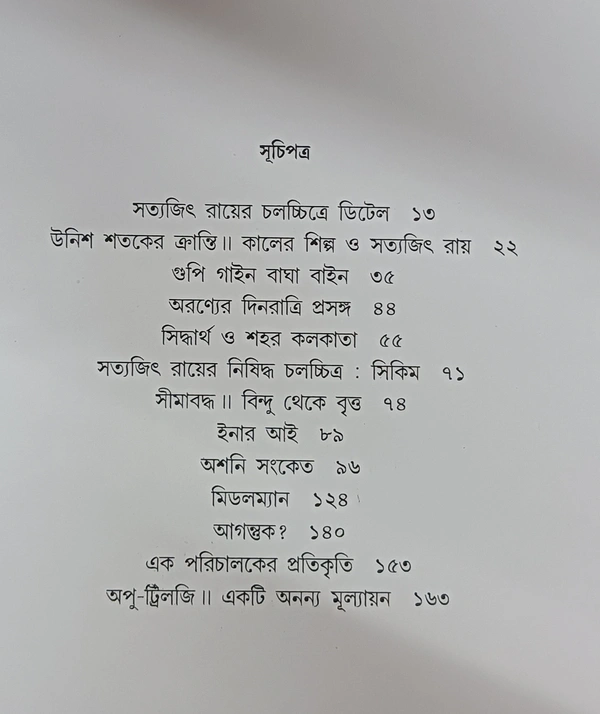 সূচিপত্র
সত্যজিৎ রায়ের চলচ্চিত্রে ডিটেল ১৩
উনিশ শতকের ক্রান্তি॥ কালের শিল্প ও সত্যজিৎ রায় ২২
গুপি গাইন বাঘা বাইন ৩৫
অরণ্যের দিনরাত্রি প্রসঙ্গ ৪৪
সিদ্ধার্থ ও শহর কলকাতা ৫৫
সত্যজিৎ রায়ের নিষিদ্ধ চলচ্চিত্র : সিকিম ৭১
সীমাবদ্ধ॥ বিন্দু থেকে বৃত্ত ৭৪
ইনার আই ৮৯
অশনি সংকেত ৯৬
মিডলম্যান ১২৪
আগন্তুক? ১৪০
এক পরিচালকের প্রতিকৃতি ১৫৩
অপু-ট্রিলজি॥ একটি অনন্য মূল্যায়ন ১৬৩